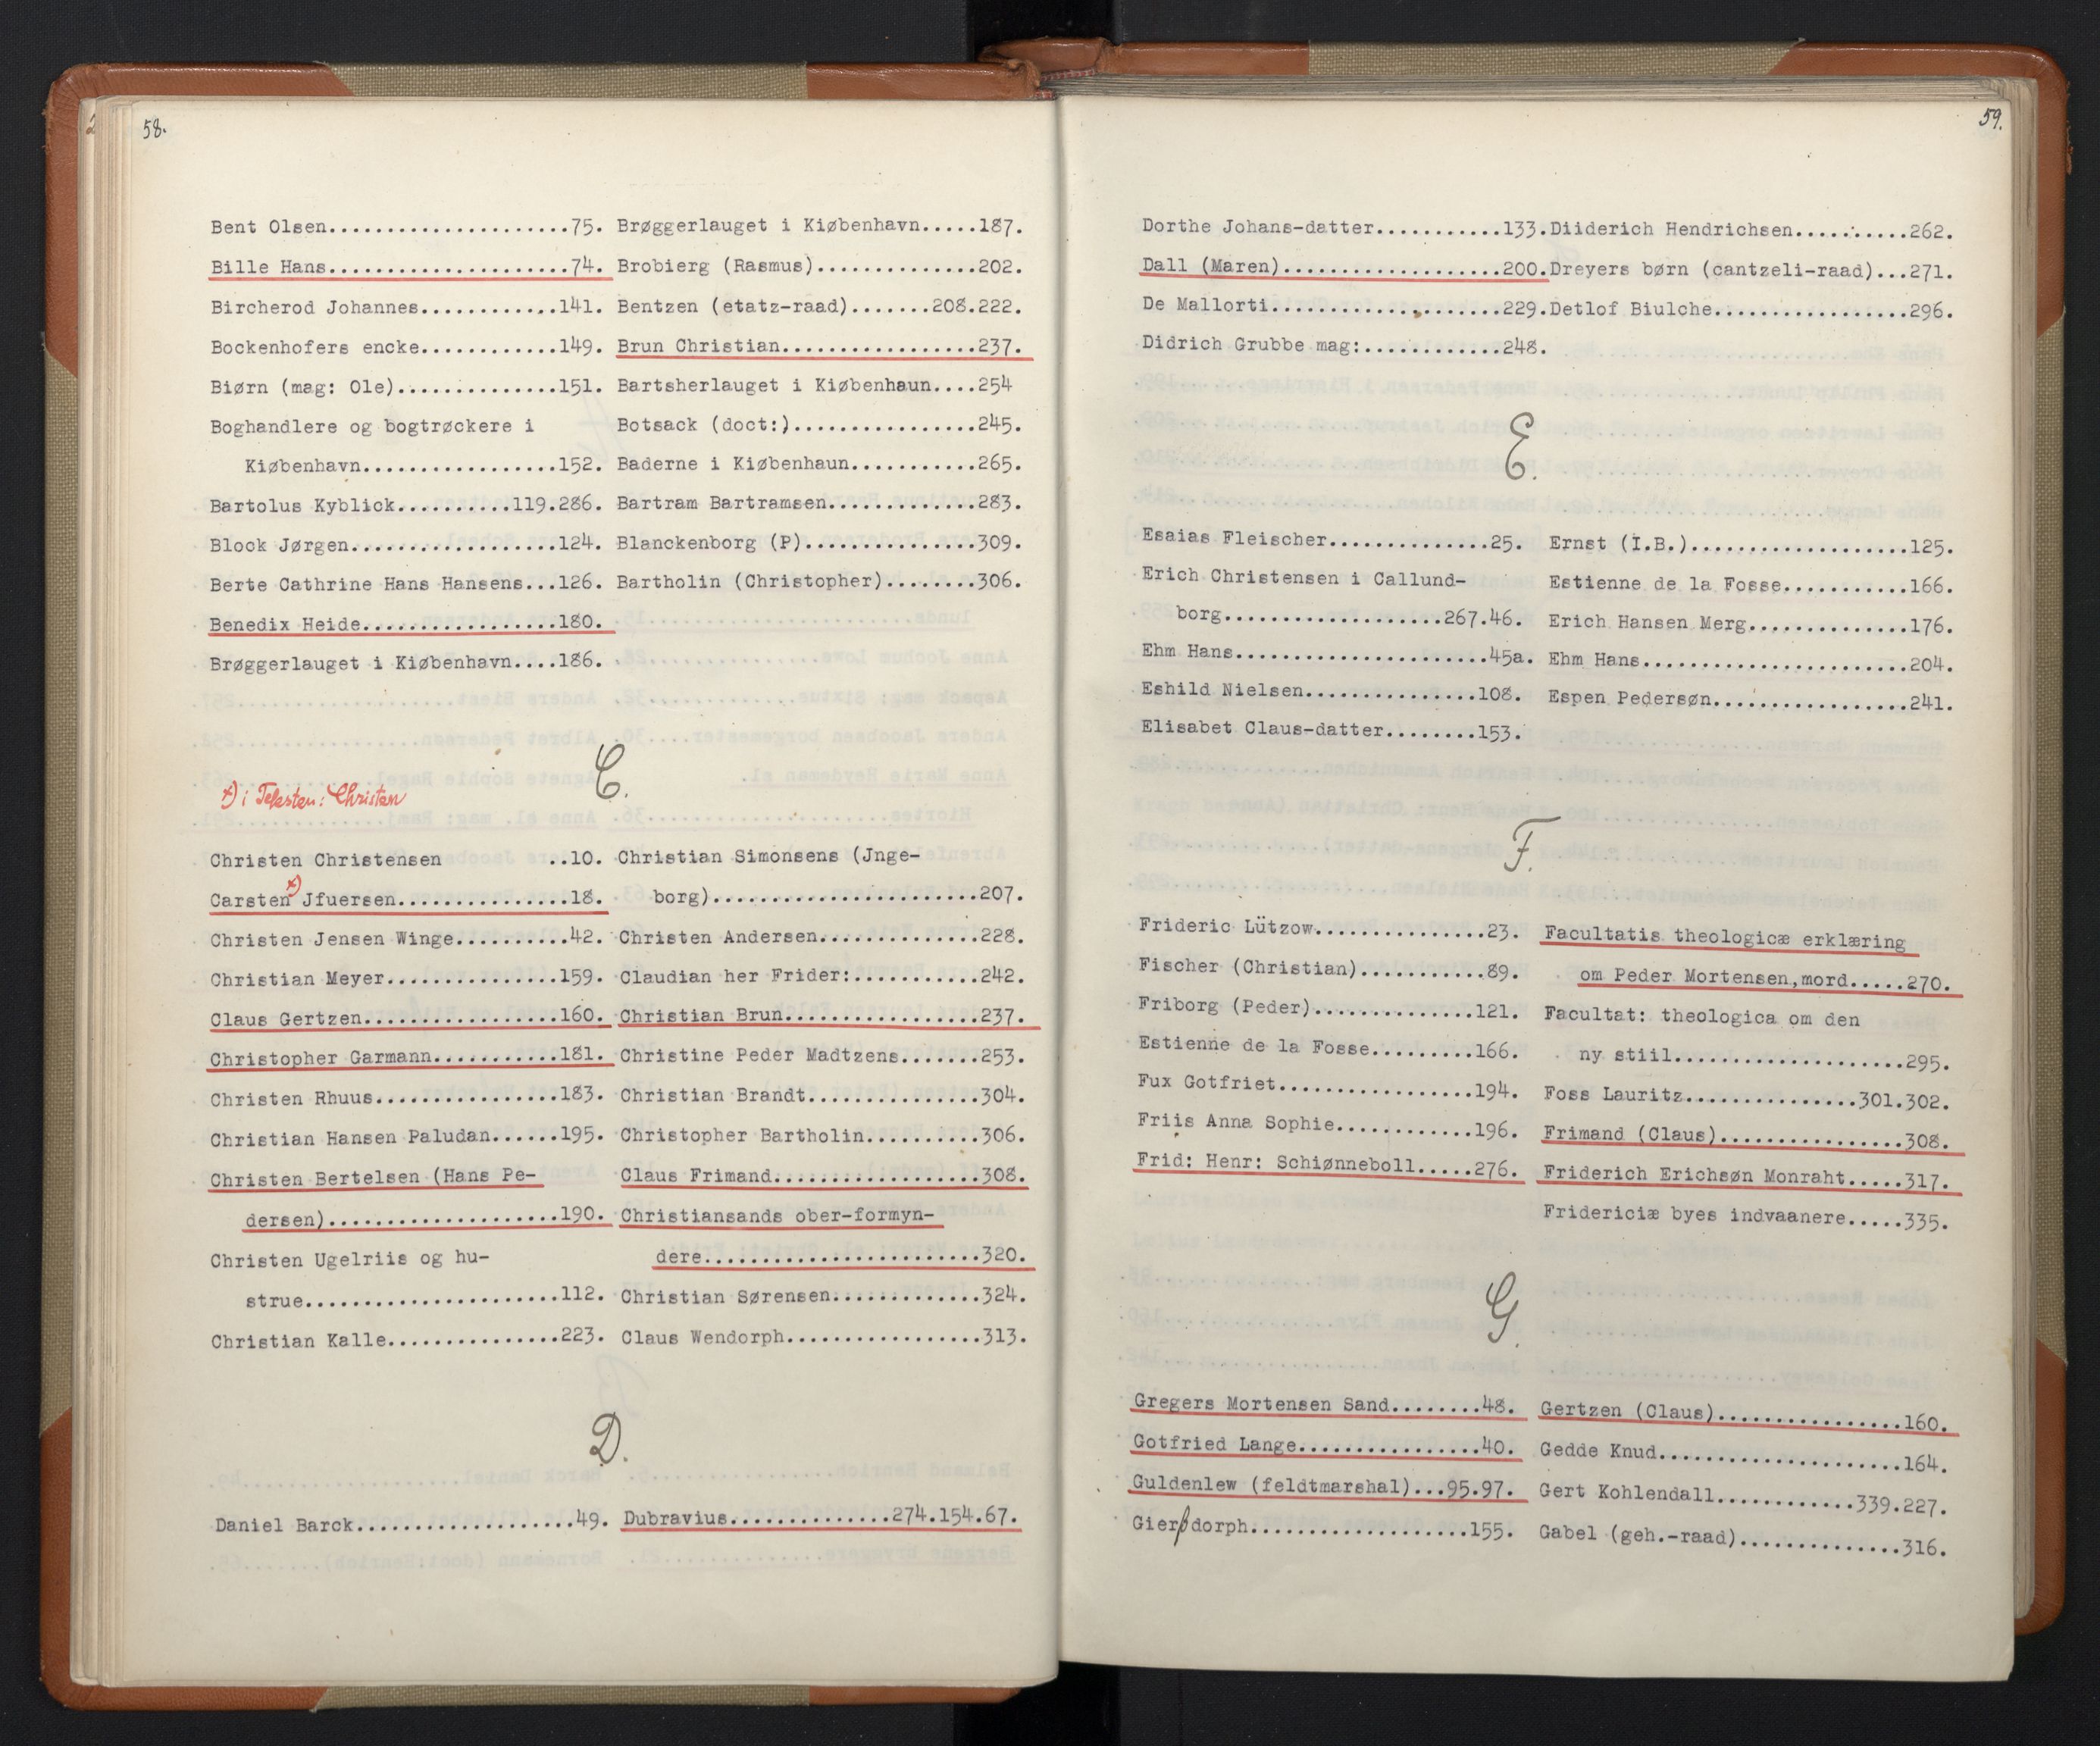 58.
Bent Olsen.....................75.
Bille Hans.....................74.
Bircherod Johannes............141.
Bockenhofers encke............149.
Biørn (mag: Ole)..............151.
Boghandlere og bogtrøckere i
Kiøbenhavn.................152.
Bartolus Kyblick..........119.286.
Block Jørgen..................124.
Berte Cathrine Hans Hansens...126.
Benedix Heide.................180.
Brøggerlauget i Kiøbenhavn....186.
Brøggerlauget i Kiøbenhavn.....187.
Brobierg (Rasmus)..............202.
Bentzen (etatz-raad).......208.222.
Brun Christian.................237.
Bartsherlauget i Kiøbenhaun....254
Botsack (doct:)................245.
Baderne i Kiøbenhaun...........265.
Bartram Bartramsen.............283.
Blanckenborg (P)...............309.
Bartholin (Christopher)........306.
C.
x) i Teksten: Christen
Christen Christensen ..10.
Carsten x) Jfuersen...............18.
Christen Jensen Winge..........42.
Christian Meyer...............159.
Claus Gertzen.................160.
Christopher Garmann...........181.
Christen Rhuus................183.
Christian Hansen Paludan......195.
Christen Bertelsen (Hans Pe-
dersen)....................190.
Christen Ugelriis og hu-
strue......................112.
Christian Kalle...............223.
Christian Simonsens (Jnge-
borg).......................207.
Christen Andersen..............228.
Claudian her Frider:...........242.
Christian Brun.................237.
Christine Peder Madtzens.......253.
Christian Brandt...............304.
Christopher Bartholin..........306.
Claus Frimand..................308.
Christiansands ober-formyn-
dere........................320.
Christian Sørensen.............324.
Claus Wendorph.................313.
D.
Daniel Barck...................49.
Dubravius..............274.154.67.
59.
Dorthe Johans-datter...........133.
Dall (Maren)...................200.
De Mallorti....................229.
Didrich Grubbe mag:............248.
Diiderich Hendrichsen..........262.
Dreyers børn (cantzeli-raad)...271.
Detlof Biulche.................296.
E.
Esaias Fleischer..............25.
Erich Christensen i Callund-
borg...................267.46.
Ehm Hans......................45a.
Eshild Nielsen...............108.
Elisabet Claus-datter........153.
Ernst (I.B.)...................125.
Estienne de la Fosse...........166.
Erich Hansen Merg..............176.
Ehm Hans.......................204.
Espen Pedersøn.................241.
F.
Frideric Lützow...............23.
Fischer (Christian)...........89.
Friborg (Peder)..............121.
Estienne de la Fosse.........166.
Fux Gotfriet.................194.
Friis Anna Sophie............196.
Frid: Henr: Schiønneboll.....276.
Facultatis theologicæ erklæring
om Peder Mortensen,mord.....270.
Facultat: theologica om den
ny stiil....................295.
Foss Lauritz...............301.302.
Frimand (Claus)................308.
Friderich Erichsøn Monraht.....317.
Fridericiæ byes indvaanere.....335.
G.
Gregers Mortensen Sand........48.
Gotfried Lange................40.
Guldenlew (feldtmarshal)...95.97.
Gierβdorph...................155.
Gertzen (Claus)................160.
Gedde Knud.....................164.
Gert Kohlendall............339.227.
Gabel (geh.-raad)..............316.